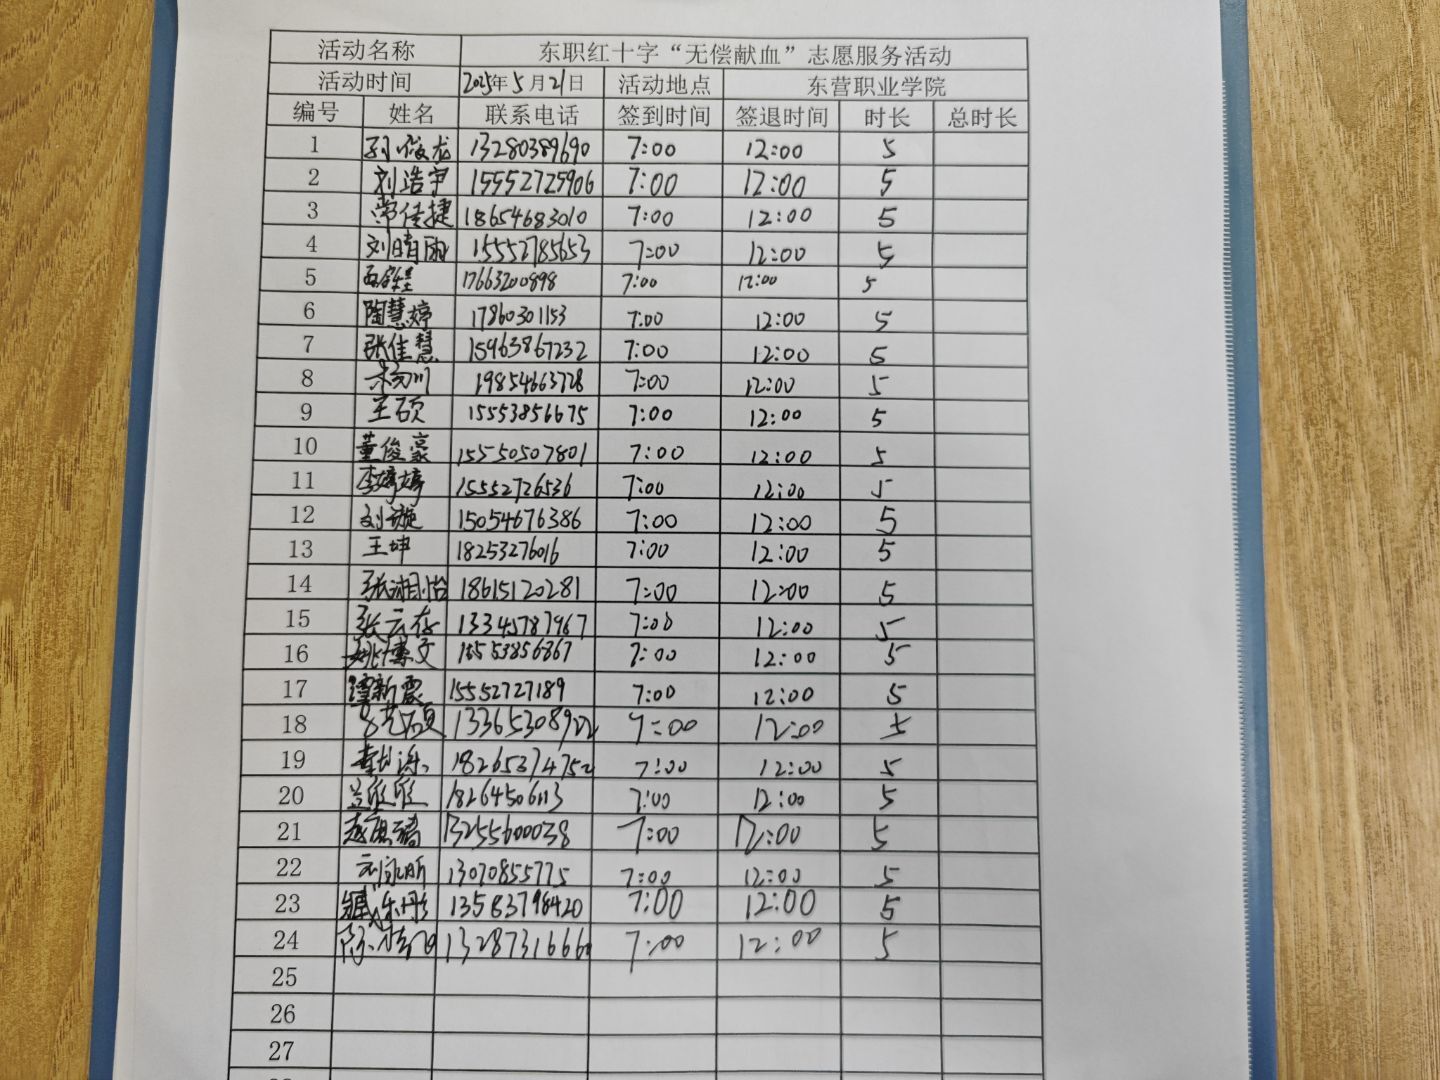 活动名称 东职红十字“无偿献血”志愿服务活动
活动时间 2025年5月21日 活动地点 东营职业学院
编号 姓名 联系电话 签到时间 签退时间 时长 总时长
1 孙俊龙 13280389690 7:00 12:00 5
2 刘浩宇 15552725906 7:00 12:00 5
3 常佳捷 18654683010 7:00 12:00 5
4 刘晴雨 15552785653 7:00 12:00 5
5 17663200898 7:00 12:00 5
6 陶慧婷 17860301153 7:00 12:00 5
7 张佳慧 15963867232 7:00 12:00 5
8 19854663728 7:00 12:00 5
9 王硕 15553856675 7:00 12:00 5
10 董俊豪 15550507801 7:00 12:00 5
11 李婷婷 15552726536 7:00 12:00 5
12 刘璇 15054676386 7:00 12:00 5
13 王坤 18253276016 7:00 12:00 5
14 张湘怡 18615120281 7:00 12:00 5
15 张云存 13345787967 7:00 12:00 5
16 姚博文 15553856867 7:00 12:00 5
17 谭新震 15552727189 7:00 12:00 5
18 13365308922 7:00 12:00 5
19 18265374752 7:00 12:00 5
20 18264506113 7:00 12:00 5
21 13255600038 7:00 12:00 5
22 13070855775 7:00 12:00 5
23 臧乐彤 13583798420 7:00 12:00 5
24 7:00 12:00 5
25
26
27